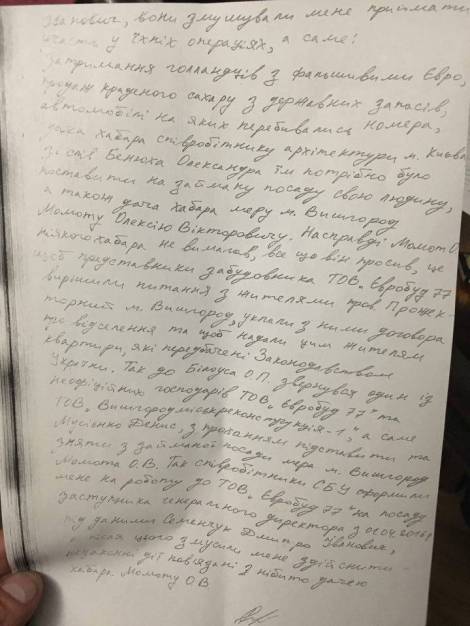 Іванович, вони змушували мене приймати
участь у їхніх операціях, а саме:
Затримання голландців з фальшивими Євро,
продаж краденого сахару з державних запасів,
автомобілі на яких перебивались номера,
дача хабара співробітнику архітектури м. Києва
зі слів Бенюха Олександра їм потрібно було
поставити на займану посаду свою людину,
а також дача хабара меру м. Вишгород
Момоту Олексію Вікторовичу. Насправді Момот О.
ніякого хабара не вимагав, все що він просив, це
щоб представники забудовника ТОВ "Евробуд 77"
вирішили питання з жителями пров. Прожек-
торний м. Вишгород, уклали з ними договора
про відселення та щоб надали цим жителям
квартири, які передбачені Законодавством
України. Так до Білоуса О.П. звернувся один із
неофіційних господарів ТОВ "Евробуд 77" та
ТОВ "Вишгородміськреконструкція-1", а саме
Мусієнко Денис, з проханням підставити та
зняти з займаної посади мера м. Вишгород
Момота О.В. Так співробітники СБУ оформили
мене на роботу до ТОВ "Евробуд 77" на посаду
заступника генерального директора з 01.04.2016р
під даними Семенчук Дмитро Іванович,
після цього змусили мене здійснити
незаконні дії пов'язані з нібито дачею
хабара Момоту О.В.